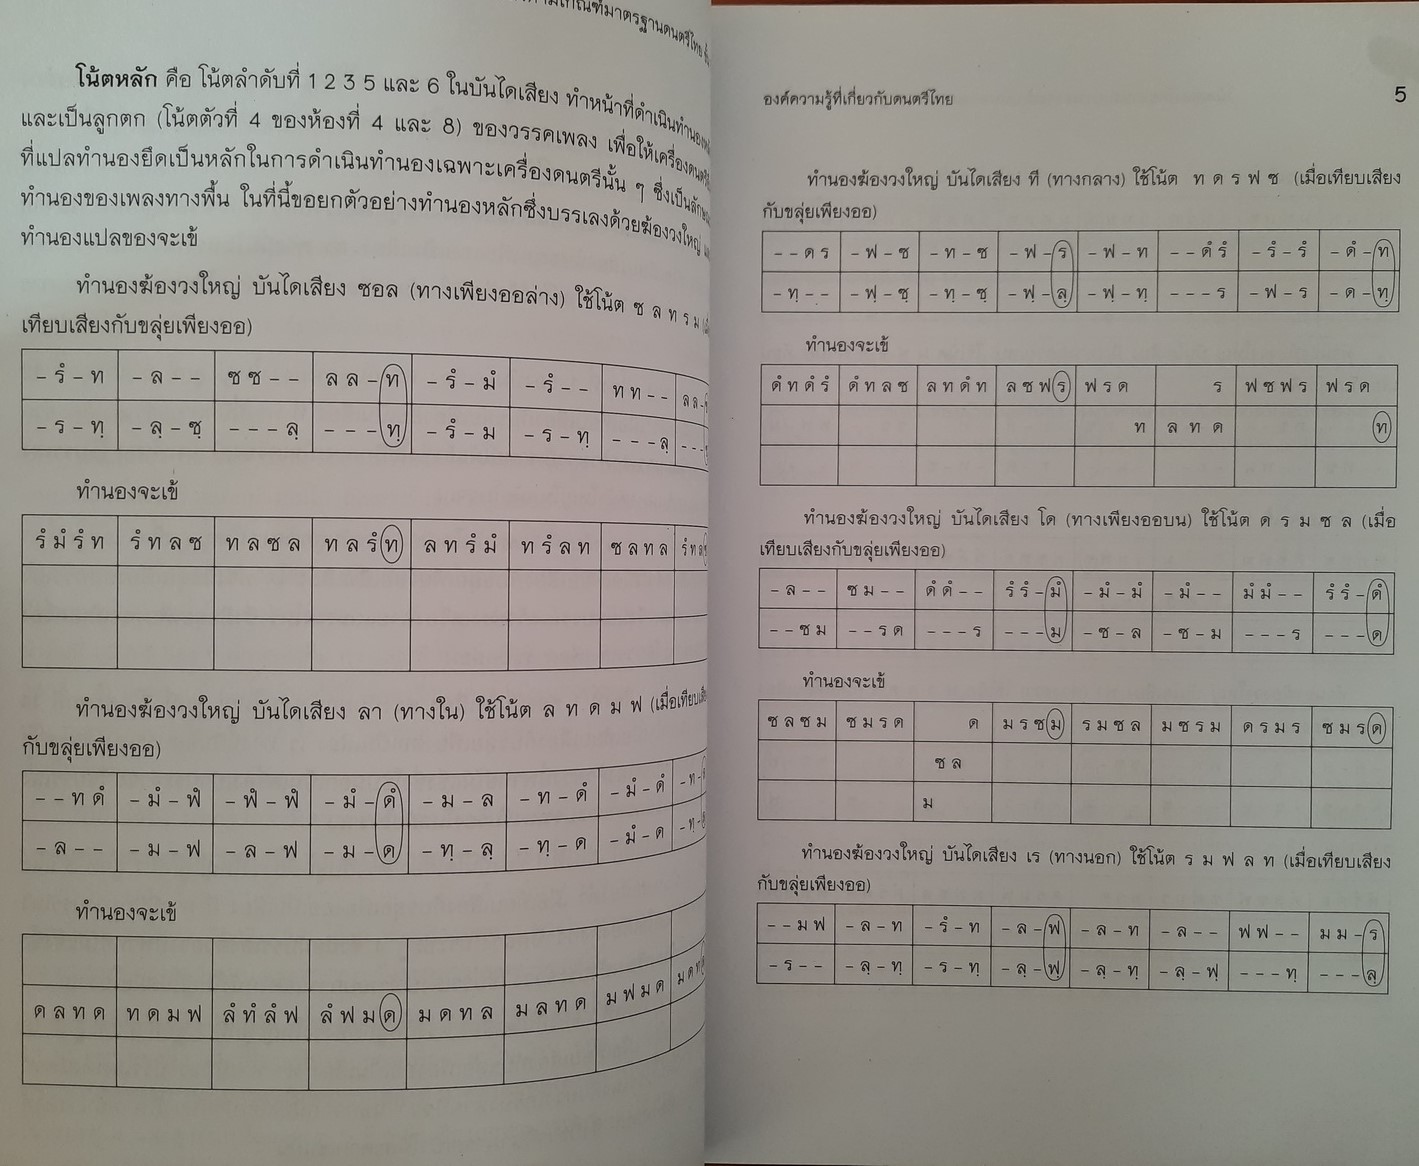 มเกณฑ์มาตรฐานดนตรีไทย
โน้ตหลัก คือ โน้ตลำดับที่ 1 2 3 5 และ 6 ในบันไดเสียง ทำหน้าที่ดำเนินทำนอง
และเป็นลูกตก (โน้ตตัวที่ 4 ของห้องที่ 4 และ 8) ของวรรคเพลง เพื่อให้เครื่องดนตรี
ที่แปลทำนองยึดเป็นหลักในการดำเนินทำนองเฉพาะเครื่องดนตรีนั้น ๆ ซึ่งเป็น
ทำนองของเพลงทางพื้น ในที่นี้ขอยกตัวอย่างทำนองหลักซึ่งบรรเลงด้วยฆ้องวงใหญ่
ทำนองแปลของจะเข้
ทำนองฆ้องวงใหญ่ บันไดเสียง ซอล (ทางเพียงออล่าง) ใช้โน้ต ซ ล ท ร ม
เทียบเสียงกับขลุ่ยเพียงออ)
– รํ – ท – ล – – ซ ซ – – ล ล – ท – รํ – มํ – รํ – – ท ท – – ล ล –
– ร – ทฺ – ลฺ – ซฺ – – – ลฺ – – – ทฺ – รํ – ม – ร – ทฺ – – – ลฺ – – –
ทำนองจะเข้
รํ มํ รํ ท รํ ท ล ซ ท ล ซ ล ท ล รํ ท ล ท รํ มํ ท รํ ล ท ซ ล ท ล รํ ท ล
ทำนองฆ้องวงใหญ่ บันไดเสียง ลา (ทางใน) ใช้โน้ต ล ท ด ม ฟ (เมื่อเทียบเสียง
กับขลุ่ยเพียงออ)
– – ท ดํ – มํ – ฟํ – ฟํ – ฟํ – มํ – ดํ – ม – ล – ท – ดํ – มํ – ดํ – ท –
– ล – – – ม – ฟ – ล – ฟ – ม – ด – ทฺ – ลฺ – ทฺ – ด – มํ – ด – ทฺ –
ทำนองจะเข้
ด ล ท ด ท ด ม ฟ ลํ ทํ ลํ ฟ ลํ ฟ ม ด ม ด ท ล ม ล ท ด ม ฟ ม ด ม ด ท
องค์ความรู้ที่เกี่ยวกับดนตรีไทย 5
ทำนองฆ้องวงใหญ่ บันไดเสียง ที (ทางกลาง) ใช้โน้ต ท ด ร ฟ ซ (เมื่อเทียบเสียง
กับขลุ่ยเพียงออ)
– – ด ร – ฟ – ซ – ท – ซ – ฟ – ร – ฟ – ท – – ดํ รํ – รํ – รํ – ดํ – ท
– ทฺ – – – ฟฺ – ซฺ – ทฺ – ซฺ – ฟฺ – ลฺ – ฟฺ – ทฺ – – – ร – ฟ – ร – ด – ทฺ
ทำนองจะเข้
ดํ ท ดํ รํ ดํ ท ล ซ ล ท ดํ ท ล ซ ฟ ร ฟ ร ด ร ฟ ซ ฟ ร ฟ ร ด
ท ล ท ด ท
ทำนองฆ้องวงใหญ่ บันไดเสียง โด (ทางเพียงออบน) ใช้โน้ต ด ร ม ซ ล (เมื่อ
เทียบเสียงกับขลุ่ยเพียงออ)
– ล – – ซ ม – – ดํ ดํ – – รํ รํ – มํ – มํ – มํ – มํ – – มํ มํ – – รํ รํ – ดํ
– – ซ ม – – ร ด – – – ร – – – ม – ซ – ล – ซ – ม – – – ร – – – ด
ทำนองจะเข้
ซ ล ซ ม ซ ม ร ด ด ม ร ซ ม ร ม ซ ล ม ซ ร ม ด ร ม ร ซ ม ร ด
ซ ล
ม
ทำนองฆ้องวงใหญ่ บันไดเสียง เร (ทางนอก) ใช้โน้ต ร ม ฟ ล ท (เมื่อเทียบเสียง
กับขลุ่ยเพียงออ)
– – ม ฟ – ล – ท – รํ – ท – ล – ฟ – ล – ท – ล – – ฟ ฟ – – ม ม – ร
– ร – – – ลฺ – ทฺ – ร – ทฺ – ลฺ – ฟฺ – ลฺ – ทฺ – ลฺ – ฟฺ – – – ทฺ – – – ลฺ